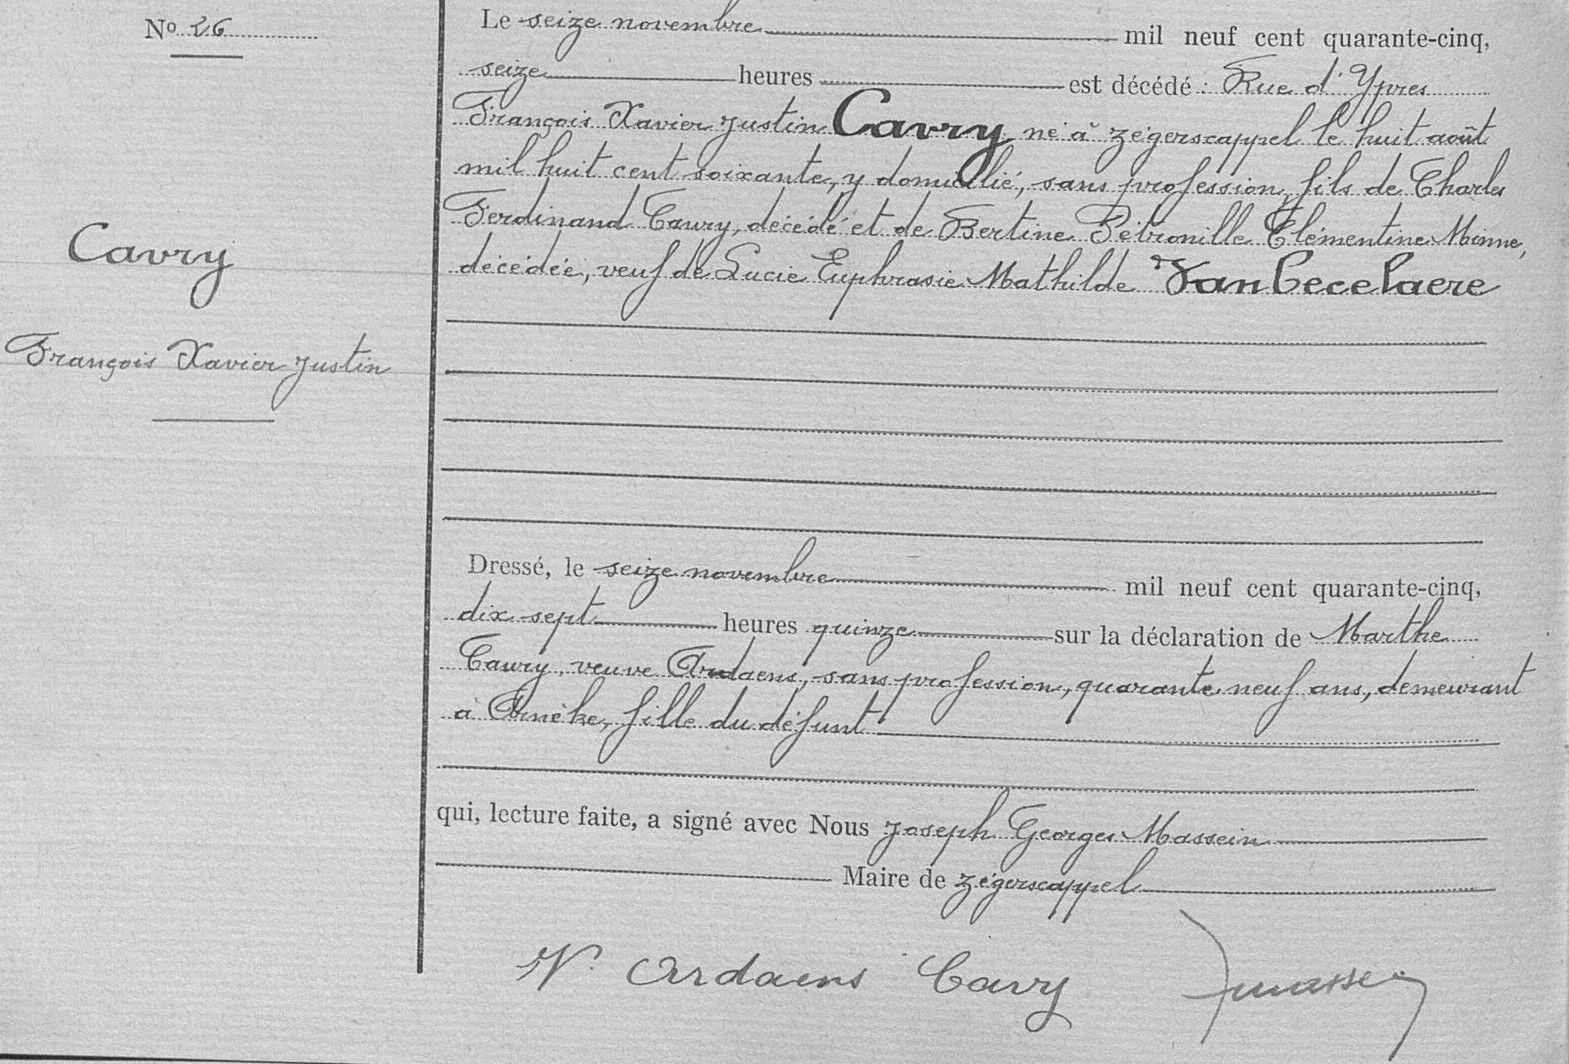 N° 26
Cavry
François Xavier Justin
Le seize novembre mil neuf cent quarante-cinq,
seize heures est décédé : Rue d'Ypres
François Xavier Justin Cavry, né à Zégerscappel le huit août
mil huit cent soixante, y domicilié, sans profession, fils de Charles
Ferdinand Cavry, décédé et de Bertine Pétronille Clémentine Minne,
décédée, veuf de Lucie Euphrasie Mathilde Vanbecelaere
Dressé, le seize novembre mil neuf cent quarante-cinq,
dix-sept heures quinze sur la déclaration de Marthe
Cavry, veuve Ardaens, sans profession, quarante neuf ans, demeurant
à Arnèke, fille du défunt
qui, lecture faite, a signé avec Nous Joseph Georges Massein
Maire de Zégerscappel
V. Ardaens Cavry